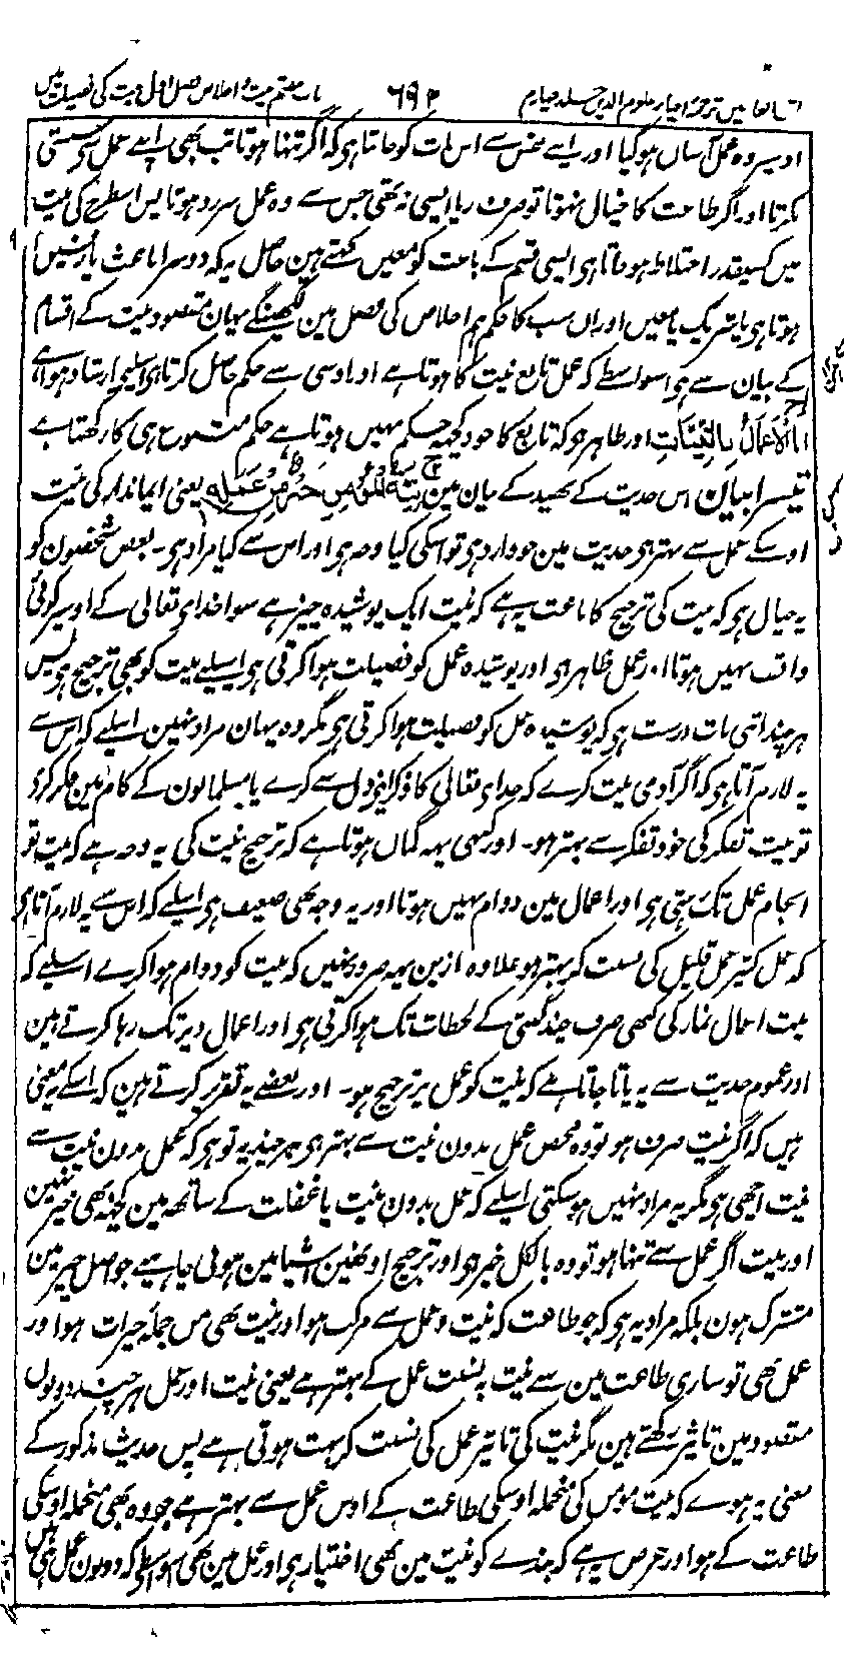 باب ہفتم نیت و اخلاص فصل اول نیت کی فضیلت میں ۶۹۲ مذاق العارفین ترجمہ احیاء علوم الدین جلد چہارم
اوسپر وہ عمل آسان ہو گیا اور اپنے نفس سے اس بات کو جانتا ہی کہ اگر تنہا ہوتا تب بھی اپنے عمل میں سستی
نکرتا اور اگر طاعت کا خیال نہوتا تو صرف ریا ایسی نہ تھی جس سے وہ عمل سرزد ہوتا پس اسطرح کی نیت
میں کسیقدر اختلاط ہو جاتا ہی ایسی قسم کے باعث کو معین کہتے ہین حاصل یہ کہ دوسرا باعث یا رفیق
ہوتا ہی یا شریک یا معین اور ان سب کا حکم ہم اخلاص کی فصل مین لکھینگے یہان مقصود نیت کے اقسام
کے بیان سے ہی اسواسطے کہ عمل تابع نیت کا ہوتا ہے اور اوسی سے حکم حاصل کرتا ہی اسلیے ارشاد ہوا ہے
انما الاَعمالُ بِالنِّیَّاتِ اور ظاہر ہو کہ تابع کا خود کچھ حکم نہیں ہوتا ہے حکم متبوع ہی کا رکھتا ہے
تیسرا بیان اس حدیث کے بھید کے بیان مین نِیَّۃُ المُؤمِنِ خَیرٌ مِن عَمَلِہٖ یعنی ایماندار کی نیت
اوسکے عمل سے بہتر ہی حدیث مین جو وارد ہی تو اسکی کیا وجہ ہی اور اس سے کیا مراد ہی۔ بعض شخصون کو
یہ خیال ہی کہ نیت کی ترجیح کا باعث یہ ہے کہ نیت ایک پوشیدہ چیز ہے سوا خدای تعالی کے اوسپر کوئی
واقف نہیں ہوتا اور عمل ظاہر ہی اور پوشیدہ عمل کو فضیلت ہوا کرتی ہی اسلیے نیت کو بھی ترجیح ہی پس
ہر چند اتنی بات درست ہی کہ پوشیدہ عمل کو فضیلت ہوا کرتی ہی مگر وہ یہان مراد نہین اسلیے کہ اس سے
یہ لازم آتا ہی کہ اگر آدمی نیت کرے کہ خدای تعالی کا ذکر اپنی دل سے کرے یا مسلمانون کے کام مین فکر کری
تو نیت تفکر کی خود تفکر سے بہتر ہو۔ اور کبھی یہہ گمان ہوتا ہے کہ ترجیح نیت کی یہ وجہ ہے کہ نیت تو
انجام عمل تک رہتی ہی اور اعمال مین دوام نہیں ہوتا اور یہ وجہ بھی ضعیف ہی اسلیے کہ اس سے یہ لازم آتا ہی
کہ عمل کثیر عمل قلیل کی نسبت کر بہتر ہو علاوہ ازین یہہ ضرور نہیں کہ نیت کو دوام ہوا کرے اسلیے کہ
نیت اعمال نماز کی کبھی صرف چند گنتی کے لحظات تک ہوا کرتی ہی اور اعمال دیر تک رہا کرتے ہین
اور عموم حدیث سے یہ پایا جاتا ہے کہ نیت کو عمل پر ترجیح ہو۔ اور بعضے یہ تقریر کرتے ہین کہ اسکے یہ معنی
ہیں کہ اگر نیت صرف ہو تو وہ محض عمل بدون نیت سے بہتر ہی ہر چند یہ تو ہی کہ عمل بدون نیت سے
نیت اچھی ہی مگر یہ مراد نہیں ہو سکتی اسلیے کہ عمل بدون نیت یا غفلت کے ساتھہ مین کچھ بھی خیر نہین
اور نیت اگر عمل سے تنہا ہو تو وہ بالکل خیر ہی اور ترجیح اونھین اشیا مین ہونی چاہیے جو اصل خیر مین
مشترک ہون بلکہ مراد یہ ہی کہ جو طاعت کہ نیت و عمل سے مرکب ہو اور نیت بھی من جملہ خیرات ہو اور
عمل بھی تو ساری طاعت مین سے نیت بہ نسبت عمل کے بہتر ہے یعنی نیت اور عمل ہر چند دونوں
مقصود مین تاثیر رکھتے ہین مگر نیت کی تاثیر عمل کی نسبت کر بہت ہوتی ہے پس حدیث مذکور کے
معنی یہ ہوے کہ نیت مومن کی منجملہ اوسکی طاعت کے اوس عمل سے بہتر ہے جو وہ بھی منجملہ اوسکی
طاعت کے ہو اور غرض یہ ہے کہ بندے کو نیت مین بھی اختیار ہی اور عمل مین بھی اسواسطے کہ دونون عمل ہی ہیں